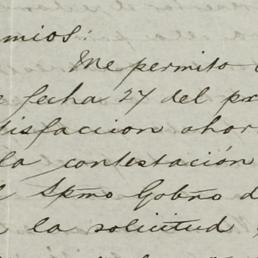 mios:
Me permito
fecha 27 del
disfaccion ahor
la contestación
Spmo Gobno d
la solicitud